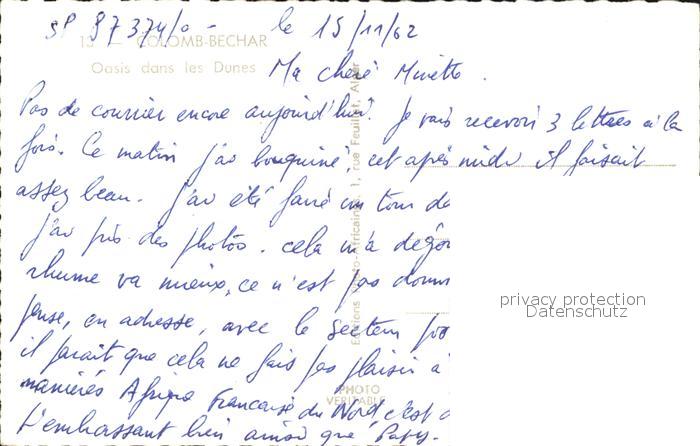 SP 87374/o - le 15/11/62
13 — COLOMB-BECHAR
Oasis dans les Dunes
Ma chère Minette.
Pas de courrier encore aujourd'hui. Je vais recevoir 3 lettres à la
fois. Ce matin j'ai bouquiné, cet après midi il faisait
assez beau. j'ai été faire un tour de
j'ai pris des photos. cela m'a dégo
rhume va mieux, ce n'est pas
pense, en adresse, avec le Secteur
il parait que cela ne fais pas plaisir à
manières Afrique Française du Nord c'est
t'embrassant bien ainsi que Papy.
1, rue Feuillet, Alger
PHOTO
VERITABLE
privacy protection
Datenschutz